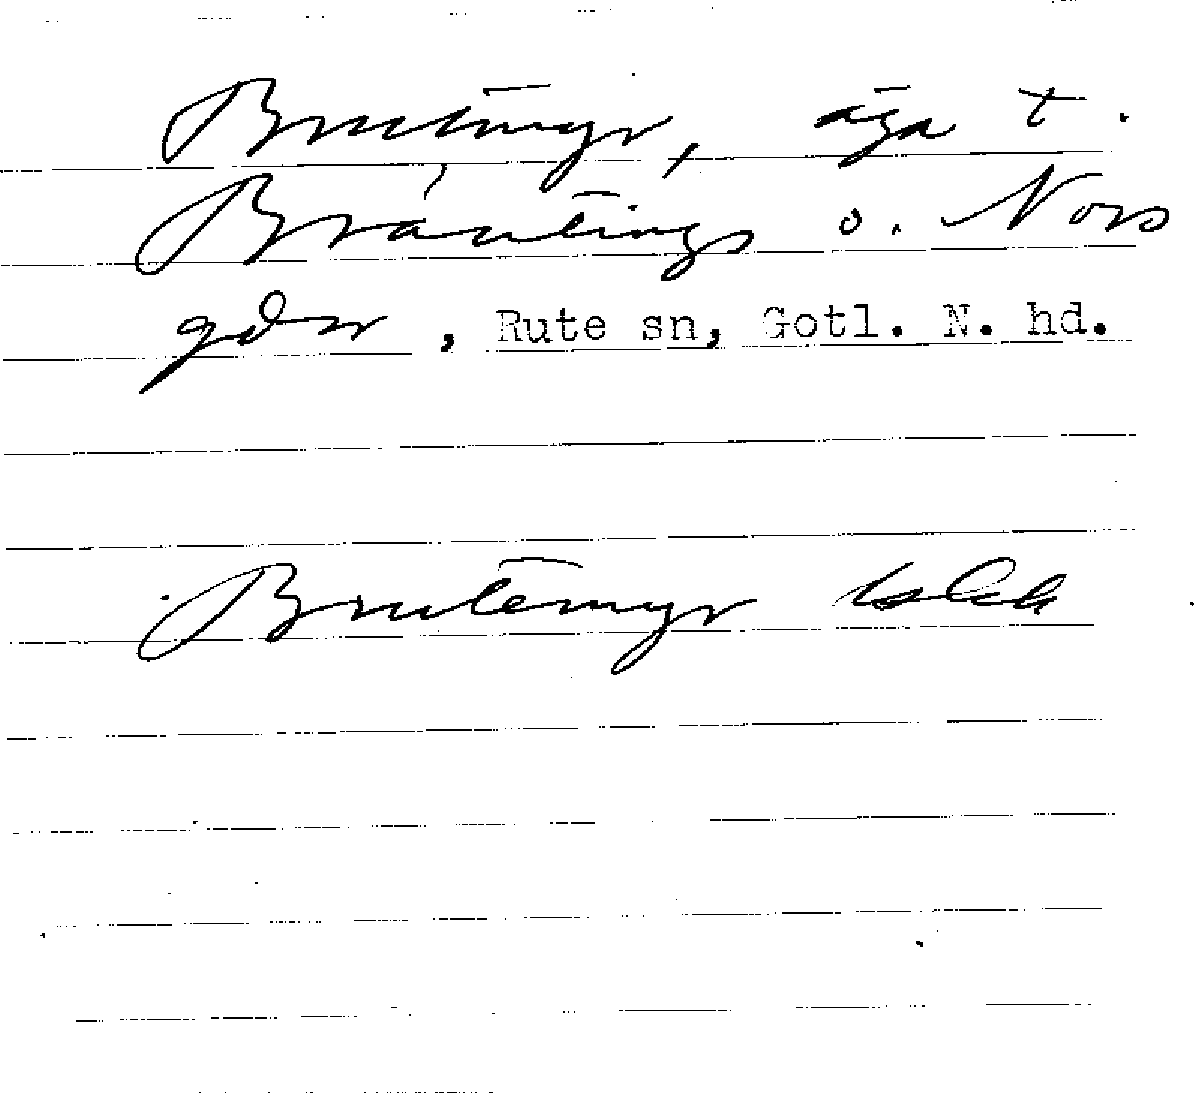 Brutmyr, äga t.
Bräntings o. Nors
gdr, Rute sn, Gotl. N. hd.
Brutemyr